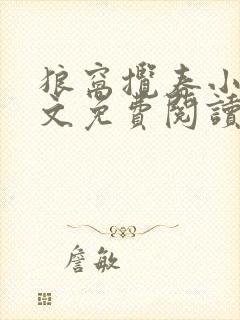 狼窩攬春小
文免費閱讀
詹敏